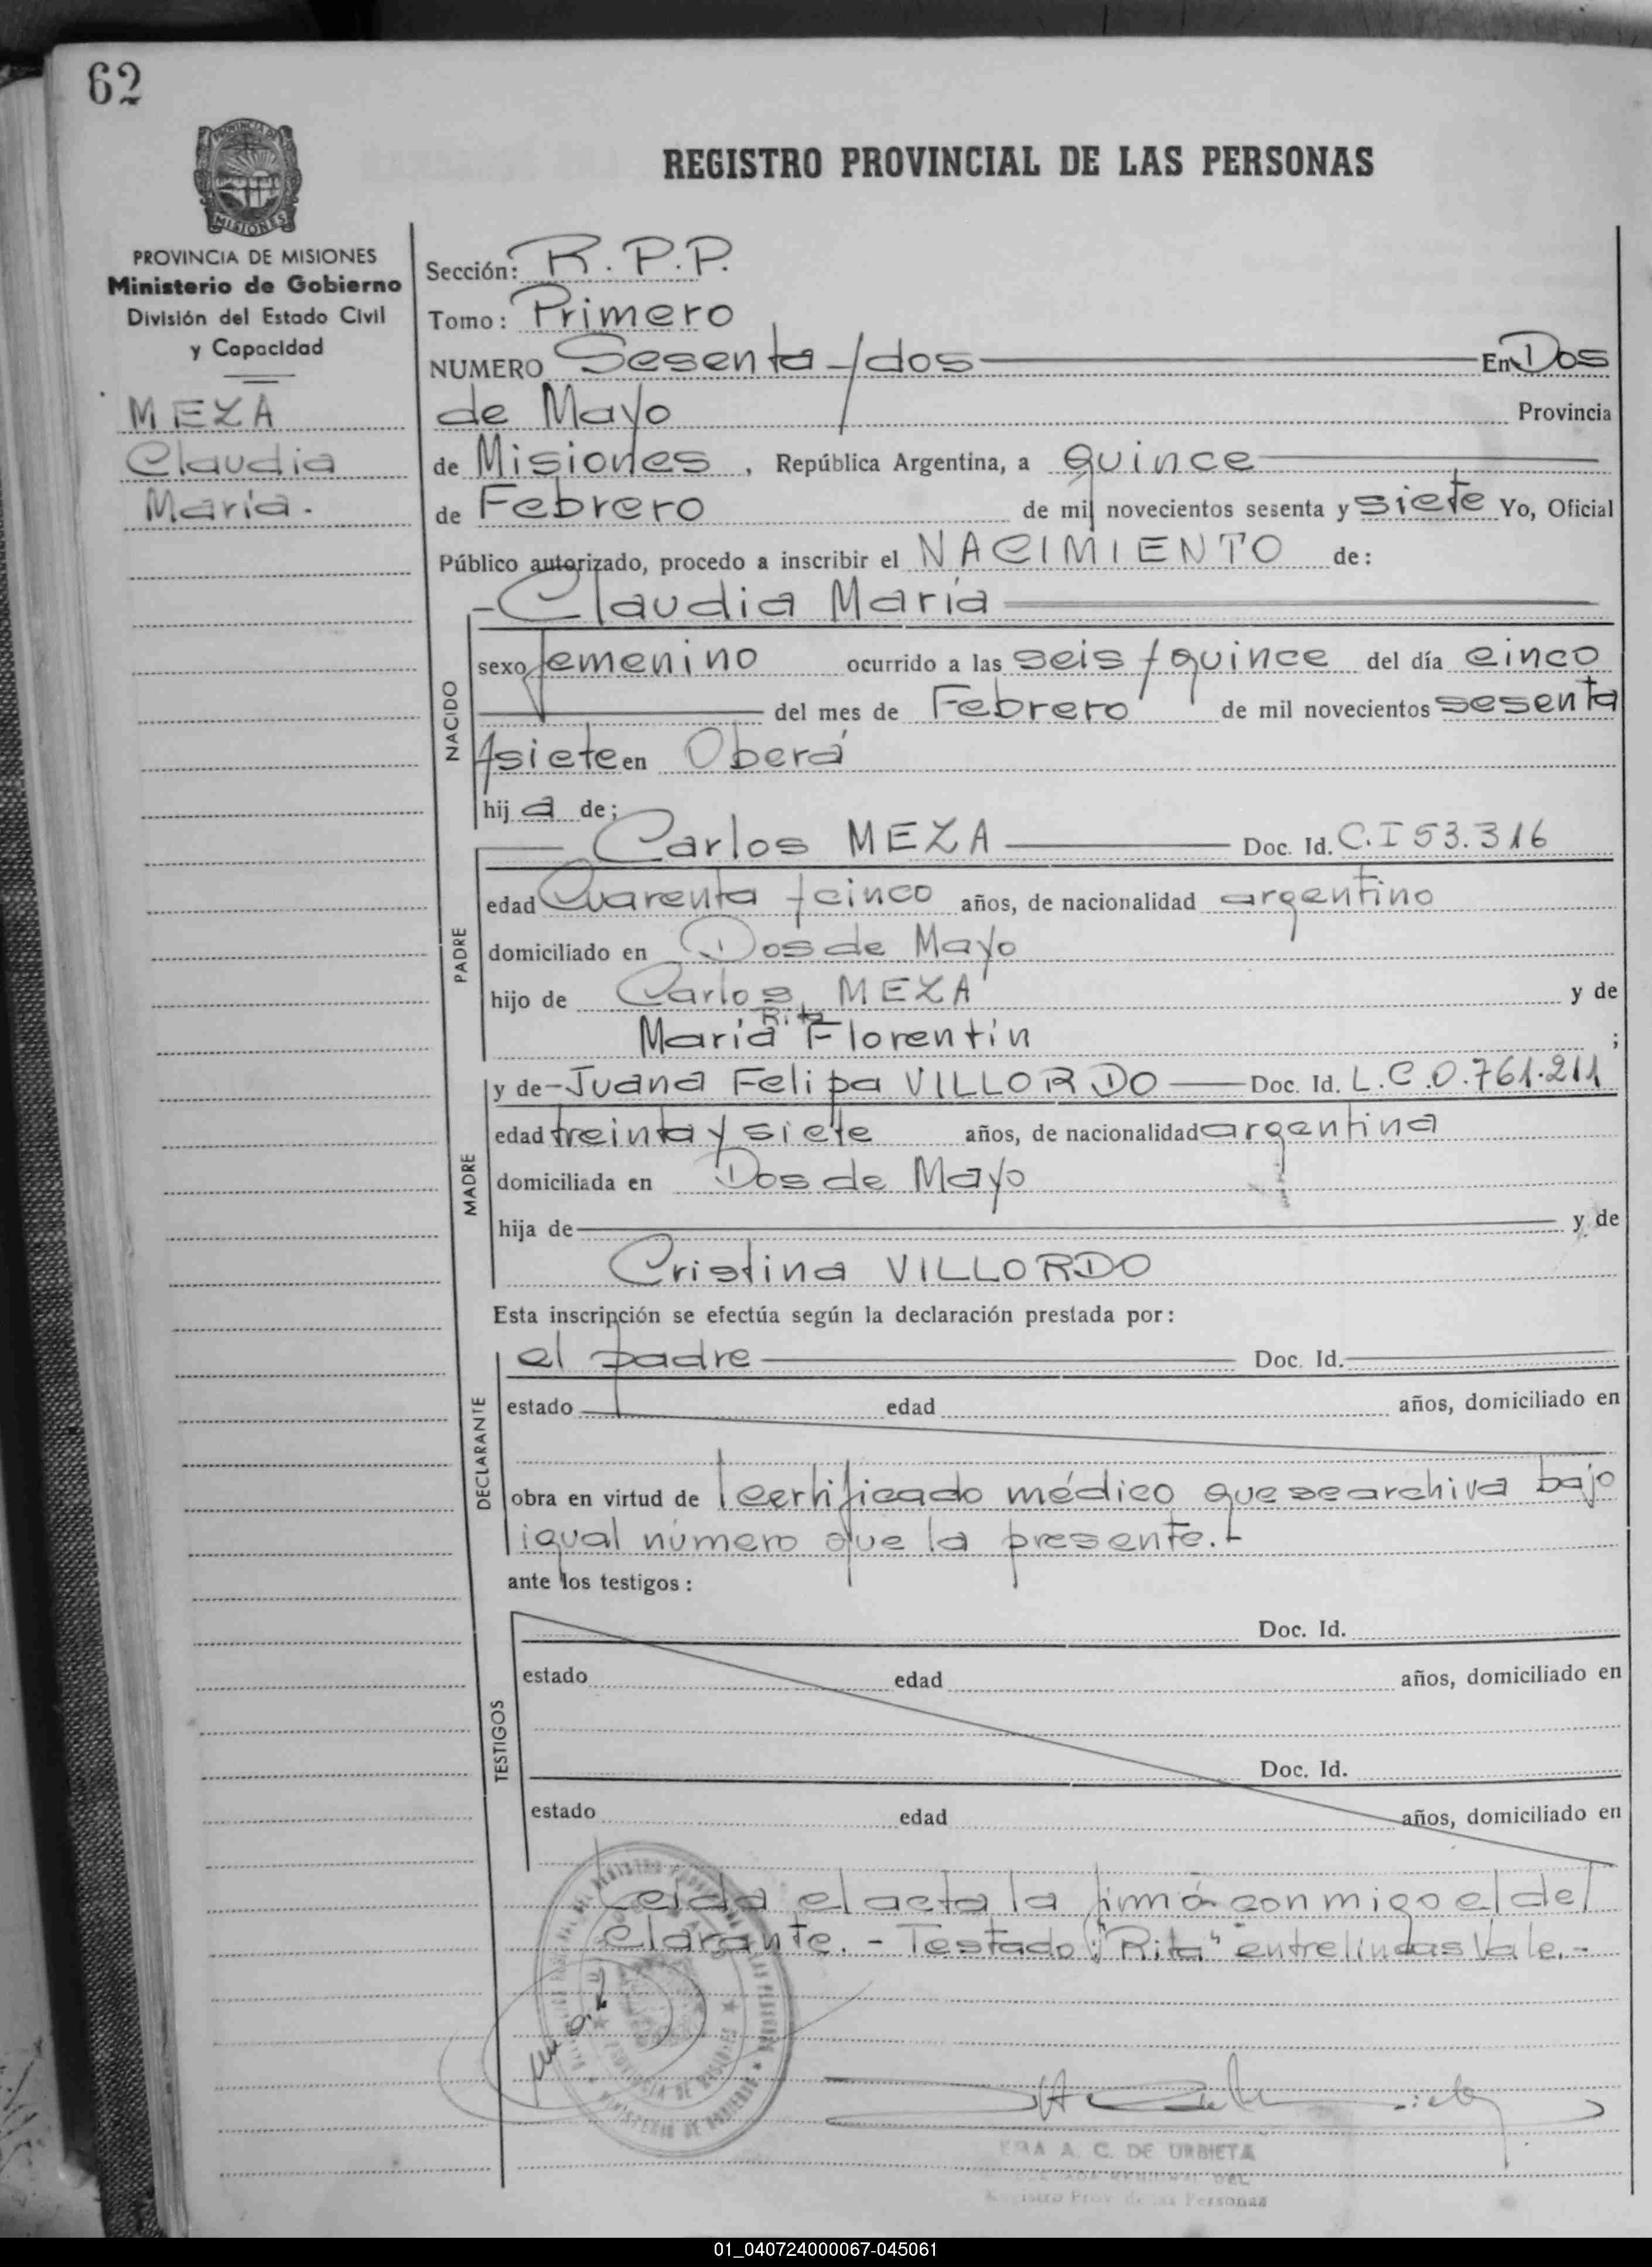 62
REGISTRO PROVINCIAL DE LAS PERSONAS
PROVINCIA DE
MISIONES
PROVINCIA DE MISIONES
Ministerio de Gobierno
División del Estado Civil
y Capacidad
MEZA
Claudia
María.
Sección: R.P.P.
Tomo: Primero
NUMERO Sesenta y dos En Dos
de Mayo Provincia
de Misiones, República Argentina, a quince
de Febrero de mil novecientos sesenta y siete Yo, Oficial
Público autorizado, procedo a inscribir el NACIMIENTO de:
NACIDO
- Claudia María
sexo femenino ocurrido a las seis y quince del día cinco
del mes de Febrero de mil novecientos sesenta
y siete en Oberá
hija de;
PADRE
Carlos MEZA Doc. Id. C.I 53.316
edad Cuarenta y cinco años, de nacionalidad argentino
domiciliado en Dos de Mayo
hijo de Carlos MEZA y de
Rita
María Florentín ;
MADRE
y de - Juana Felipa VILLORDO Doc. Id. L.C.0.761.211
edad treinta y siete años, de nacionalidad argentina
domiciliada en Dos de Mayo
hija de y de
Cristina VILLORDO
Esta inscripción se efectúa según la declaración prestada por:
DECLARANTE
el padre Doc. Id.
estado edad años, domiciliado en
obra en virtud de certificado médico que se archiva bajo
igual número que la presente.-
ante los testigos:
TESTIGOS
Doc. Id.
estado edad años, domiciliado en
Doc. Id.
estado edad años, domiciliado en
Leida el acta la firmó conmigo el de
clarante. - Testado: "Rita" entrelineas Vale.-
A. C. DE URBIETA
Registro Prov. de las Personas
01_040724000067-045061